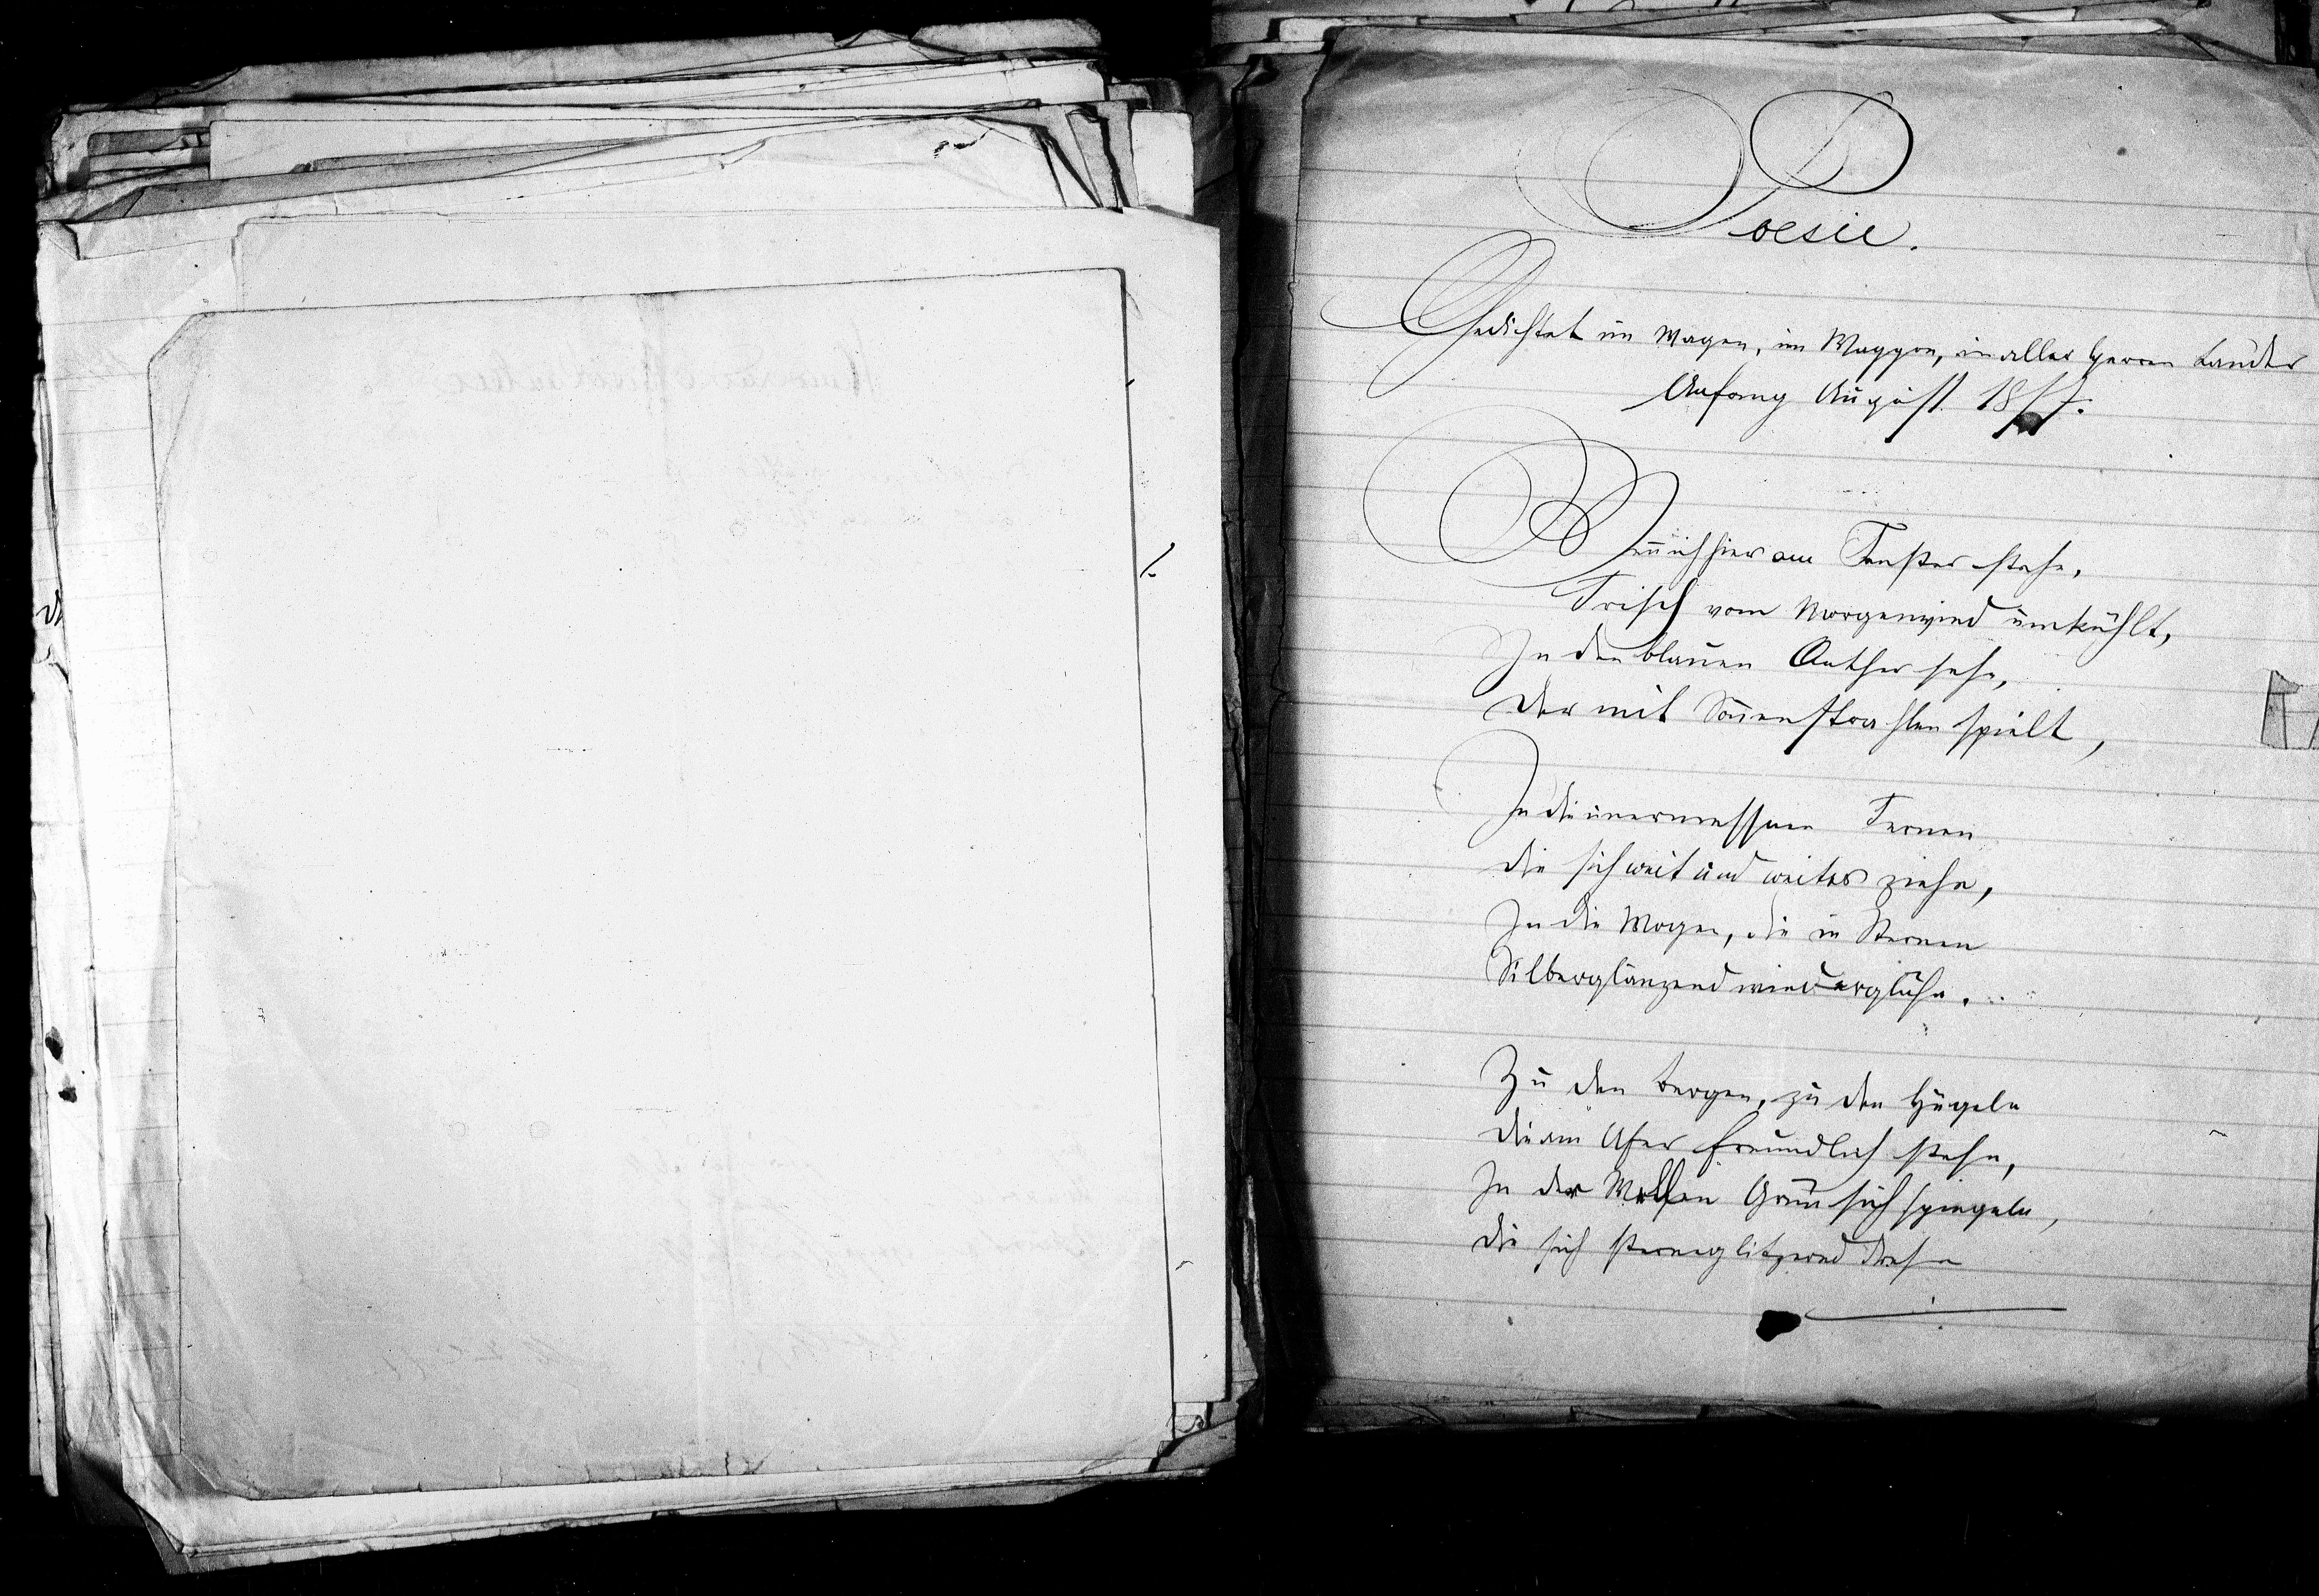 Poesie.
Gedichtet im Wagen, im Waggon, in aller Herren Länder
Anfang August 1857.
Wenn̄ ich hier am Fenster stehe,
Frisch vom Morgenwind umkühlt,
In den blauen Aether sehe,
Der mit Son̄enstrahlen spielt,
In die unermessnen Fernen
Die sich weit und weiter ziehn,
In die Wogen, die in Sternen
Silberglänzend wiederglühn.
Zu den Bergen, zu den Hügeln
Die am Ufer freundlich stehn,
In der Wellen Grün sich spiegeln,
Die sich sternenglitzernd drehn